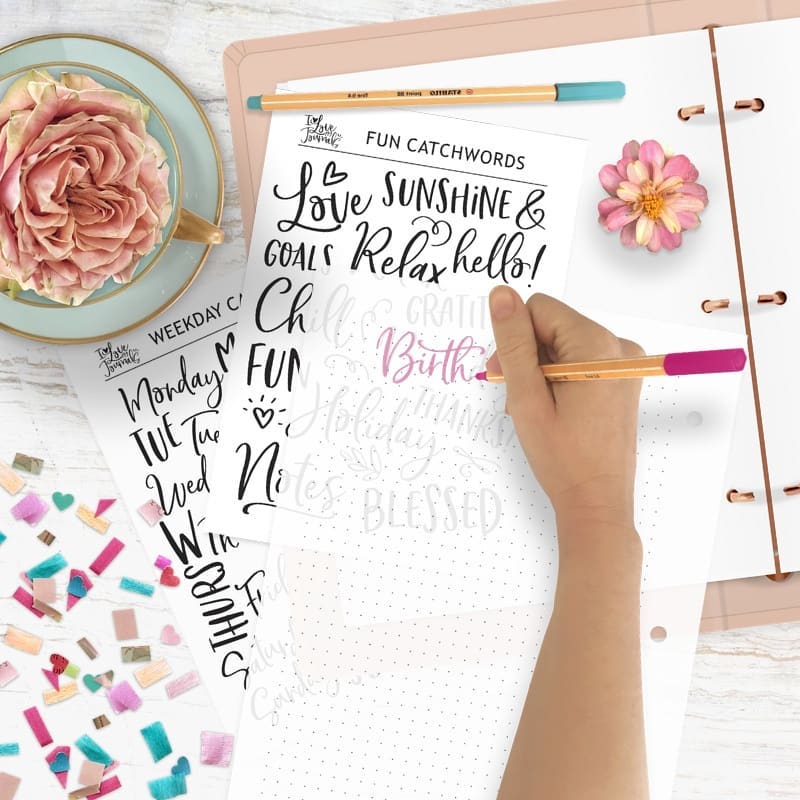 STABILO point 88 fine 0.4
I Love My Journals
FUN CATCHWORDS
Love SUNSHINE &
GOALS Relax hello!
Chill & GRATIT
FUN Birth
THANKS
Holiday
Notes BLESSED
I Love My Journals
WEEKDAY CA
Monday M
TUE Tue
Wed
W
THURS
Frid
Saturd
Sunday